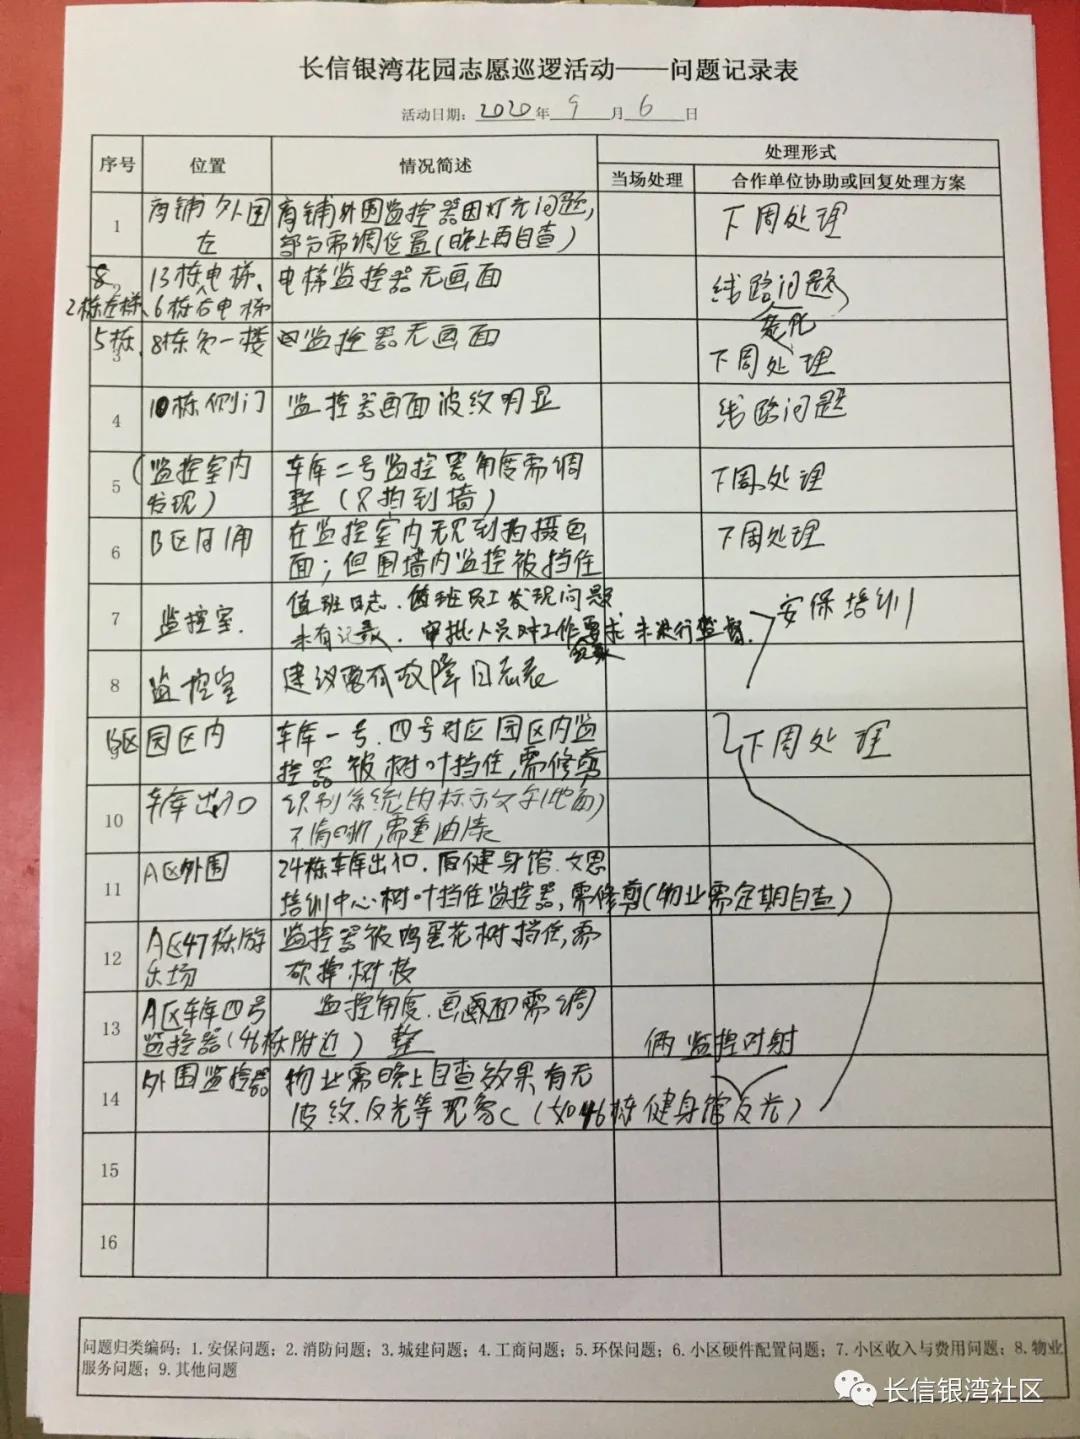 长信银湾花园志愿巡逻活动——问题记录表
活动日期：2020年9月6日
序号 位置 情况简述 处理形式
当场处理 合作单位协助或回复处理方案
1 商铺外围 商铺外围监控器因灯光问题，
左 部分需调位置(晚上再自查) 下周处理
8 2 13栋电梯、 电梯监控器无画面 线路问题
2栋左梯、6栋右电梯 老化
5栋、3 8栋负一楼 监控器无画面 下周处理
4 10栋侧门 监控器画面波纹明显 线路问题
5 (监控室内 车库二号监控器角度需调 下周处理
发现) 整(只拍到墙)
6 B区 在监控室内无见到拍摄画 下周处理
面；但围墙内监控被挡住
7 监控室. 值班日志、值班员工发现问题 安保培训
未有记录、审批人员对工作要求未进行监督.
记录
8 监控室 建议需有故障日志表
B区 9 园区内 车库一号、四号对应园区内监 下周处理
控器被树叶挡住，需修剪
10 车库出入口 识别系统内标示文字(地面)
不清晰，需重油漆
11 A区外围 24栋车库出口、后健身馆、文思
培训中心树叶挡住监控器，需修剪(物业需定期自查)
12 A区47栋游 监控器被鸡蛋花树挡住，需
乐场 砍掉树枝
13 A区车库四号 监控角度、画面需调
监控器(46栋附近) 整 俩监控对射
14 外围监控器 物业需晚上自查效果，有无
波纹、反光等现象(如46栋健身馆反光)
15
16
问题归类编码：1.安保问题；2.消防问题；3.城建问题；4.工商问题；5.环保问题；6.小区硬件配置问题；7.小区收入与费用问题；8.物业
服务问题；9.其他问题
长信银湾社区